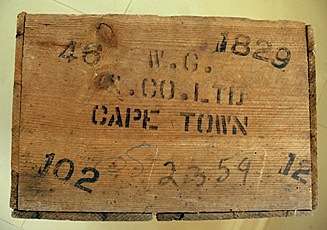 48 W.G. 1829
.CO.LTD
CAPE TOWN
102 2359 12